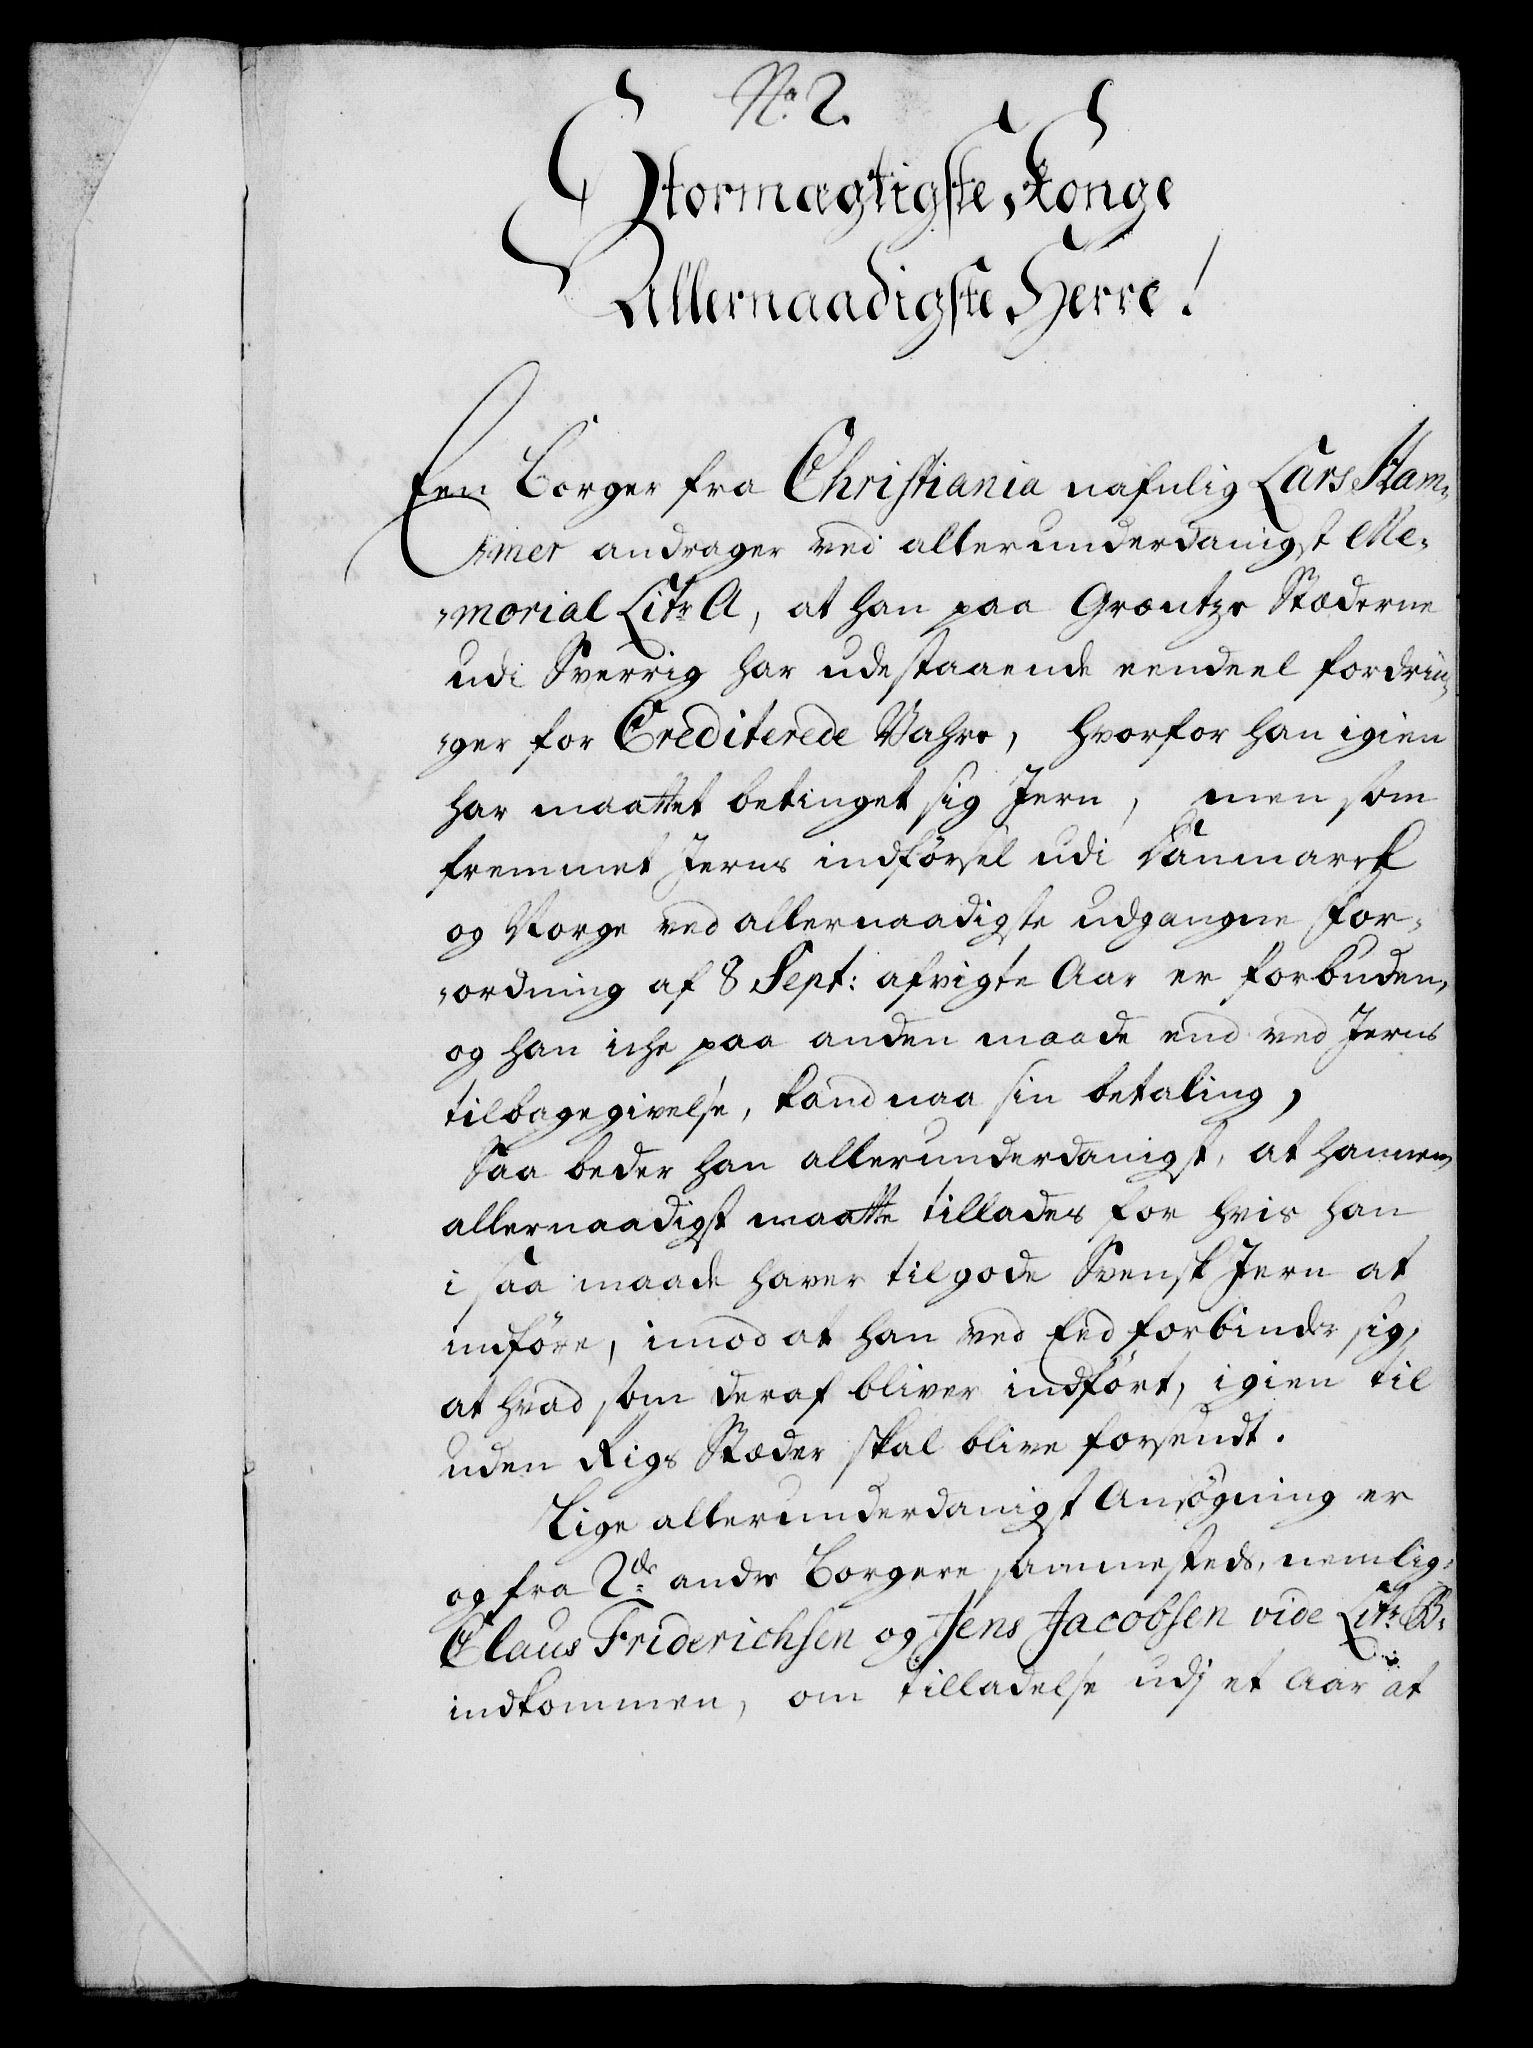 No. 2.
Stormægtigste Konge
Allernaadigste Herre!
Een Borger fra Christiania nafnlig Lars Ham„
„mer andrager ved allerunderdanigst Me„
„morial Litr A, at han paa Græntze Stæderne
udi Sverrig har udestaaende eendeel fordrin„
„ger for Crediterede Vahre, hvorfor han igien
har maattet betinget sig Jern, men som
fremmet Jerns indførsel udi Danmarck
og Norge ved allernaadigste udgangne For„
„ordning af 8 Sept: afvigte Aar er forbuden,
og han iche paa anden maade end ved Jerns
tilbagegivelse, kand naa sin betaling,
Saa beder han allerunderdanigst, at hannem
allernaadigst maatte tillades for hvis han
i saa maade haver tilgode Svensk Jern at
indføre, imod at han ved Eed forbinder sig,
at hvad som deraf bliver indført, igien til
uden Rigs Stæder skal blive forsendt.
Lige allerunderdanigst Ansøgning er
og fra 2de andre Borgere sammesteds, nemlig
Claus Friderichsen og Jens Jacobsen vide Litr. B.
indkommen, om tilladelse udj et Aar at